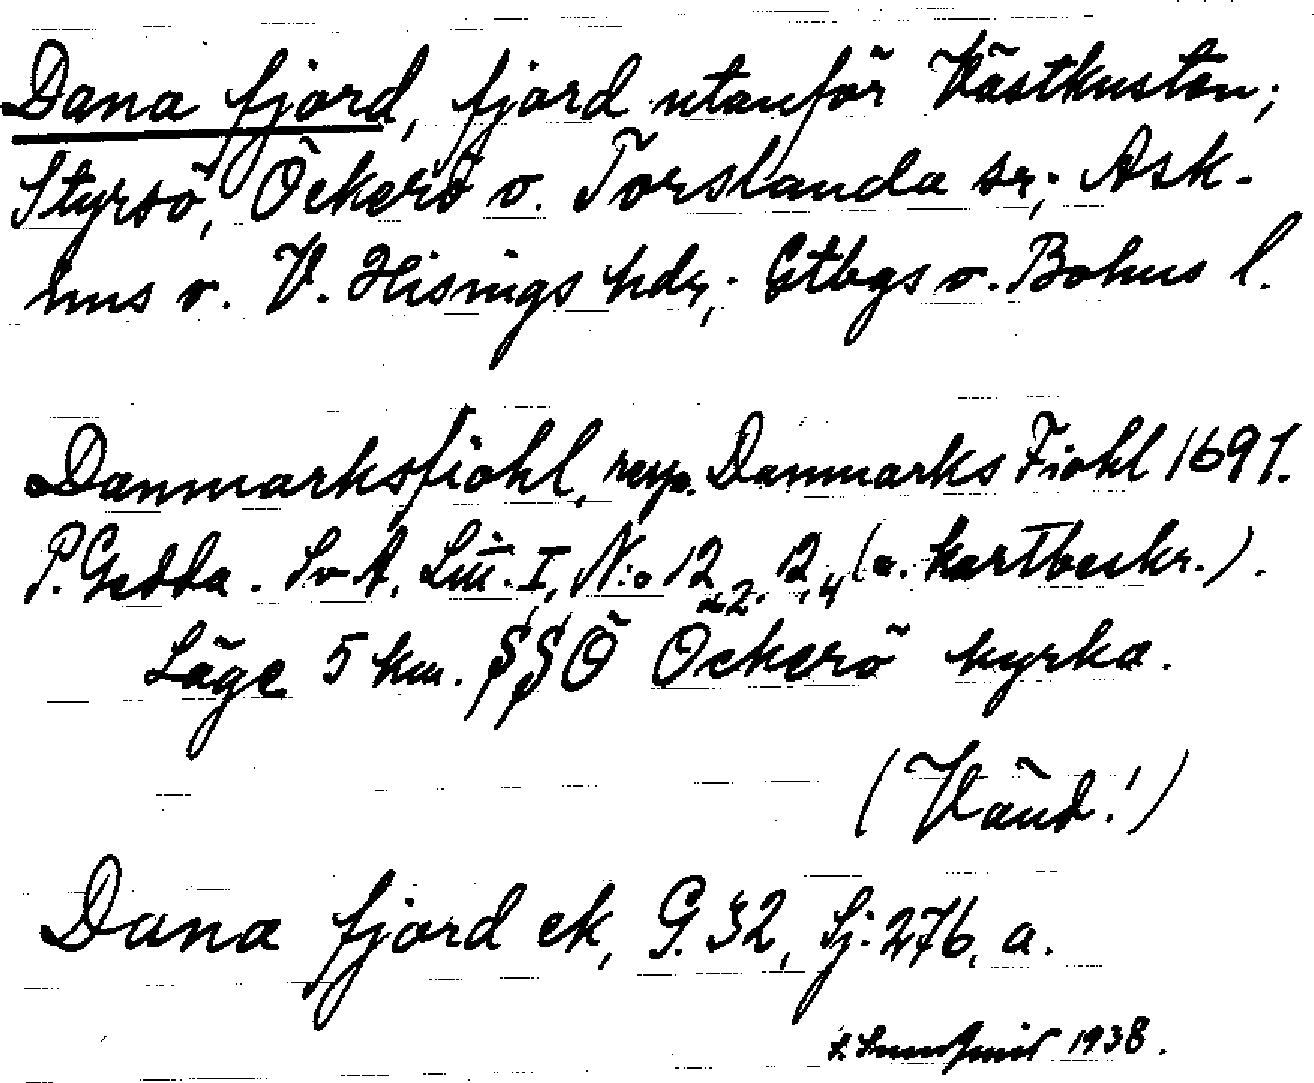 Dana fjord, fjord utanför Västkusten;
Styrsö, Öckerö o. Torslanda sr; Ask-
ims o. V. Hisings hdr; Gtbgs o. Bohus l.
Danmarksfiohl, resp. Danmarks Fiohl 1691.
P. Gedda. SvA, Litt. I, N:o 12 2, 12, 4 (o. kartbeskr.).
Läge 5 km. SSÖ Öckerö kyrka.
(Vänd!)
Dana fjord ek, G. 32, Sj. 276, a.
1938.